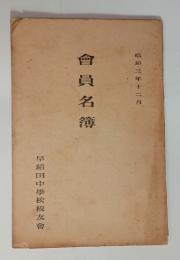 昭和三年十二月
會員名簿
早稻田中學校校友會